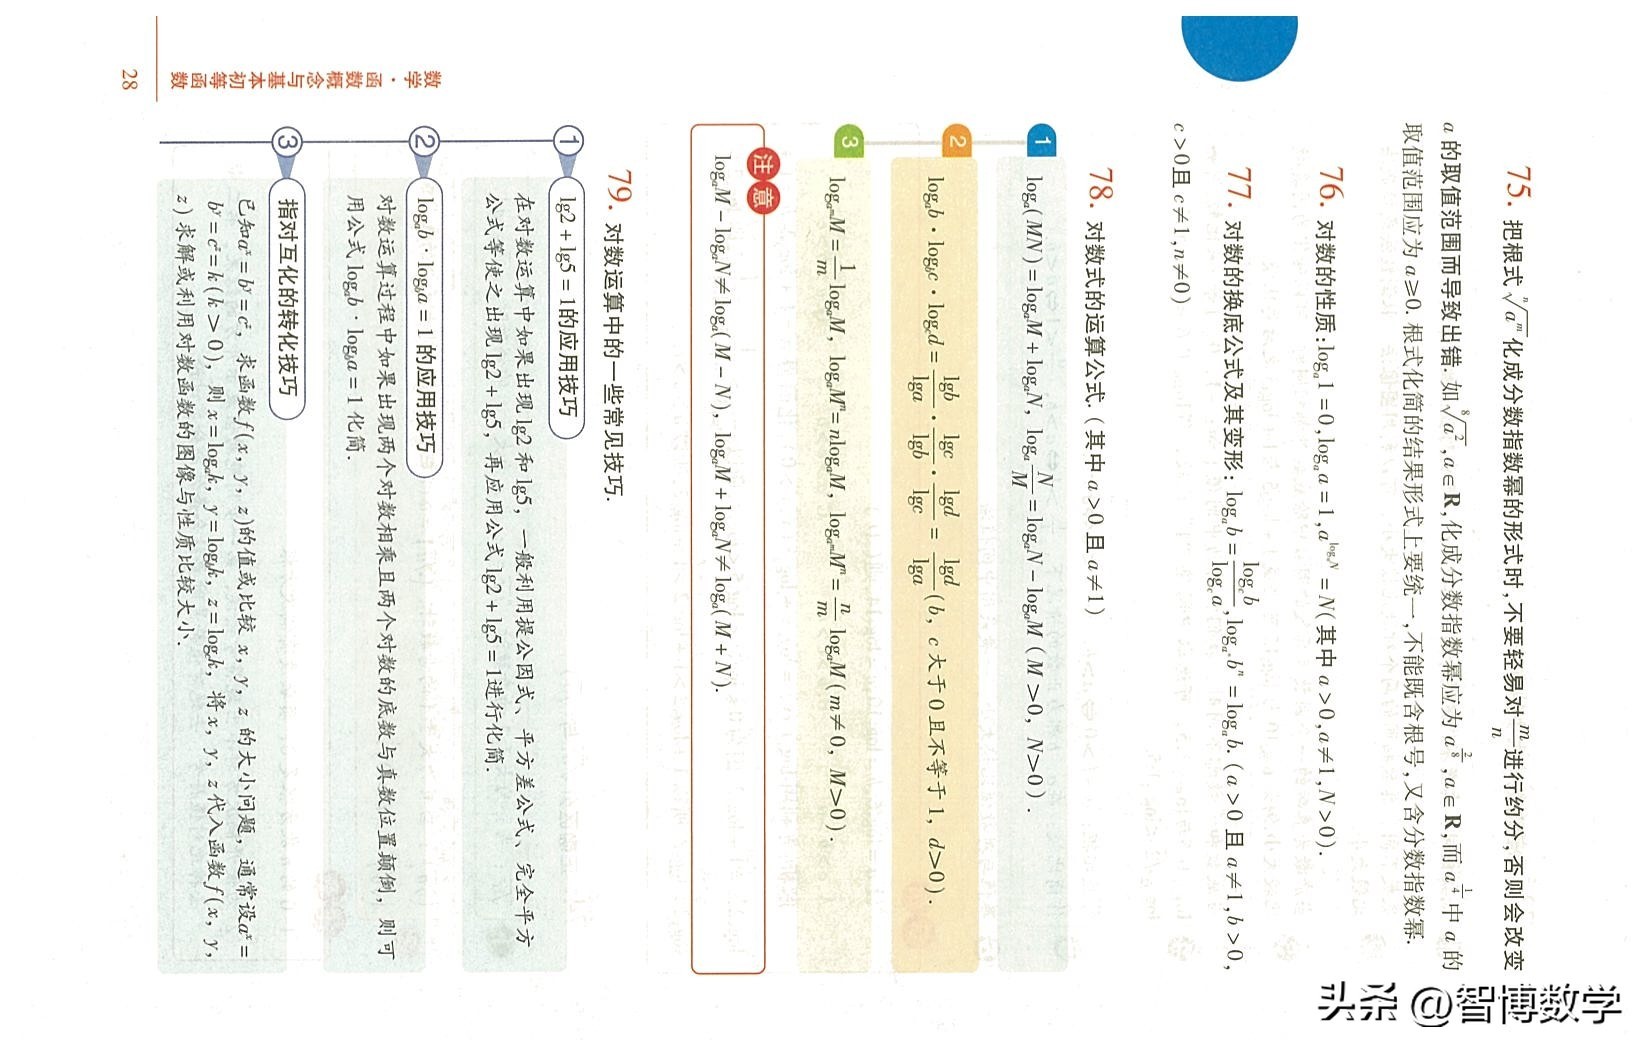 75. 把根式 ⁿ√aᵐ 化成分数指数幂的形式时,不要轻易对 m/n 进行约分,否则会改变
a 的取值范围而导致出错. 如 ⁸√a², a∈R, 化成分数指数幂应为 a^(2/8), a∈R, 而 a^(1/4) 中 a 的
取值范围应为 a≥0. 根式化简的结果形式上要统一,不能既含根号,又含分数指数幂.
76. 对数的性质:logₐ1=0, logₐa=1, a^(logₐN)=N(其中 a>0,a≠1,N>0).
77. 对数的换底公式及其变形: logₐb=log_c b/log_c a, log_(aⁿ)bⁿ=logₐb. (a>0 且 a≠1,b>0,
c>0且 c≠1,n≠0)
78. 对数式的运算公式.(其中 a>0 且 a≠1)
1 logₐ(MN)=logₐM+logₐN, logₐ N/M=logₐN-logₐM(M>0, N>0).
2 logₐb·log_b c·log_c d=lgb/lga·lgc/lgb·lgd/lgc=lgd/lga(b, c 大于 0 且不等于 1, d>0).
3 log_(aᵐ)M=1/m logₐM, logₐMⁿ=nlogₐM, log_(aᵐ)Mⁿ=n/m logₐM(m≠0, M>0).
注意
logₐM-logₐN≠logₐ(M-N), logₐM+logₐN≠logₐ(M+N).
79. 对数运算中的一些常见技巧.
1 lg2+lg5=1的应用技巧
在对数运算中如果出现lg2和lg5, 一般利用提公因式、平方差公式、完全平方
公式等使之出现lg2+lg5, 再应用公式lg2+lg5=1进行化简.
2 logₐb·log_b a=1的应用技巧
对数运算过程中如果出现两个对数相乘且两个对数的底数与真数位置颠倒, 则可
用公式logₐb·log_b a=1化简.
3 指对互化的转化技巧
已知aˣ=bʸ=cᶻ, 求函数f(x, y, z)的值或比较x, y, z的大小问题, 通常设aˣ=
bʸ=cᶻ=k(k>0), 则x=logₐk, y=log_b k, z=log_c k, 将x, y, z代入函数f(x, y,
z)求解或利用对数函数的图像与性质比较大小.
数学·函数概念与基本初等函数
28
头条 @智博数学